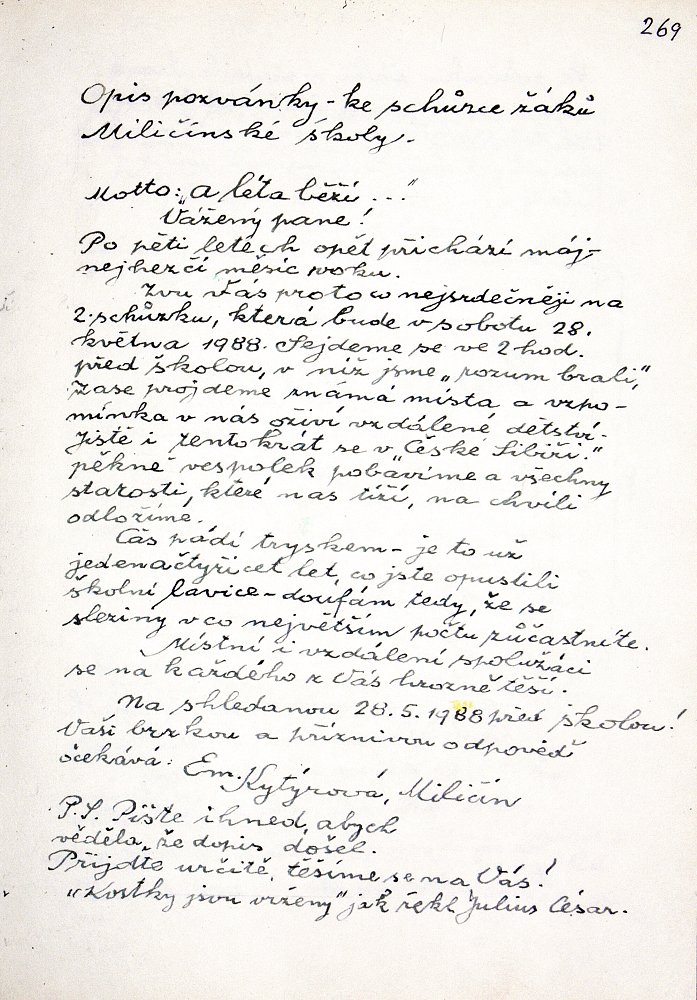 269
Opis pozvánky - ke schůzce žáků
Miličínské školy.
Motto: „a léta běží ..."
Vážený pane!
Po pěti letech opět přichází máj-
nejhezčí měsíc roku.
Zvu Vás proto co nejsrdečněji na
2. schůzku, která bude v sobotu 28.
května 1988. Sejdeme se ve 2 hod.
před školou, v níž jsme „rozum brali,"
zase projdeme známá místa a vzpo-
mínka v nás oživí vzdálené dětství.
Jistě i tentokrát se v „České Sibiři."
pěkně vespolek pobavíme a všechny
starosti, které nás tíží, na chvíli
odložíme.
Čas pádí tryskem - je to už
jedenačtyřicet let, co jste opustili
školní lavice - doufám tedy, že se
sleziny v co největším počtu zúčastníte.
Místní i vzdálení spolužáci
se na každého z Vás hrozně těší.
Na shledanou 28. 5. 1988 před školou!
Vaši brzkou a příznivou odpověď
očekává: Em. Kytýrová, Miličín
P.S. Pište ihned, abych
věděla, že dopis došel.
Přijďte určitě, těšíme se na Vás!
„Kostky jsou vrženy" jak řekl Julius César.